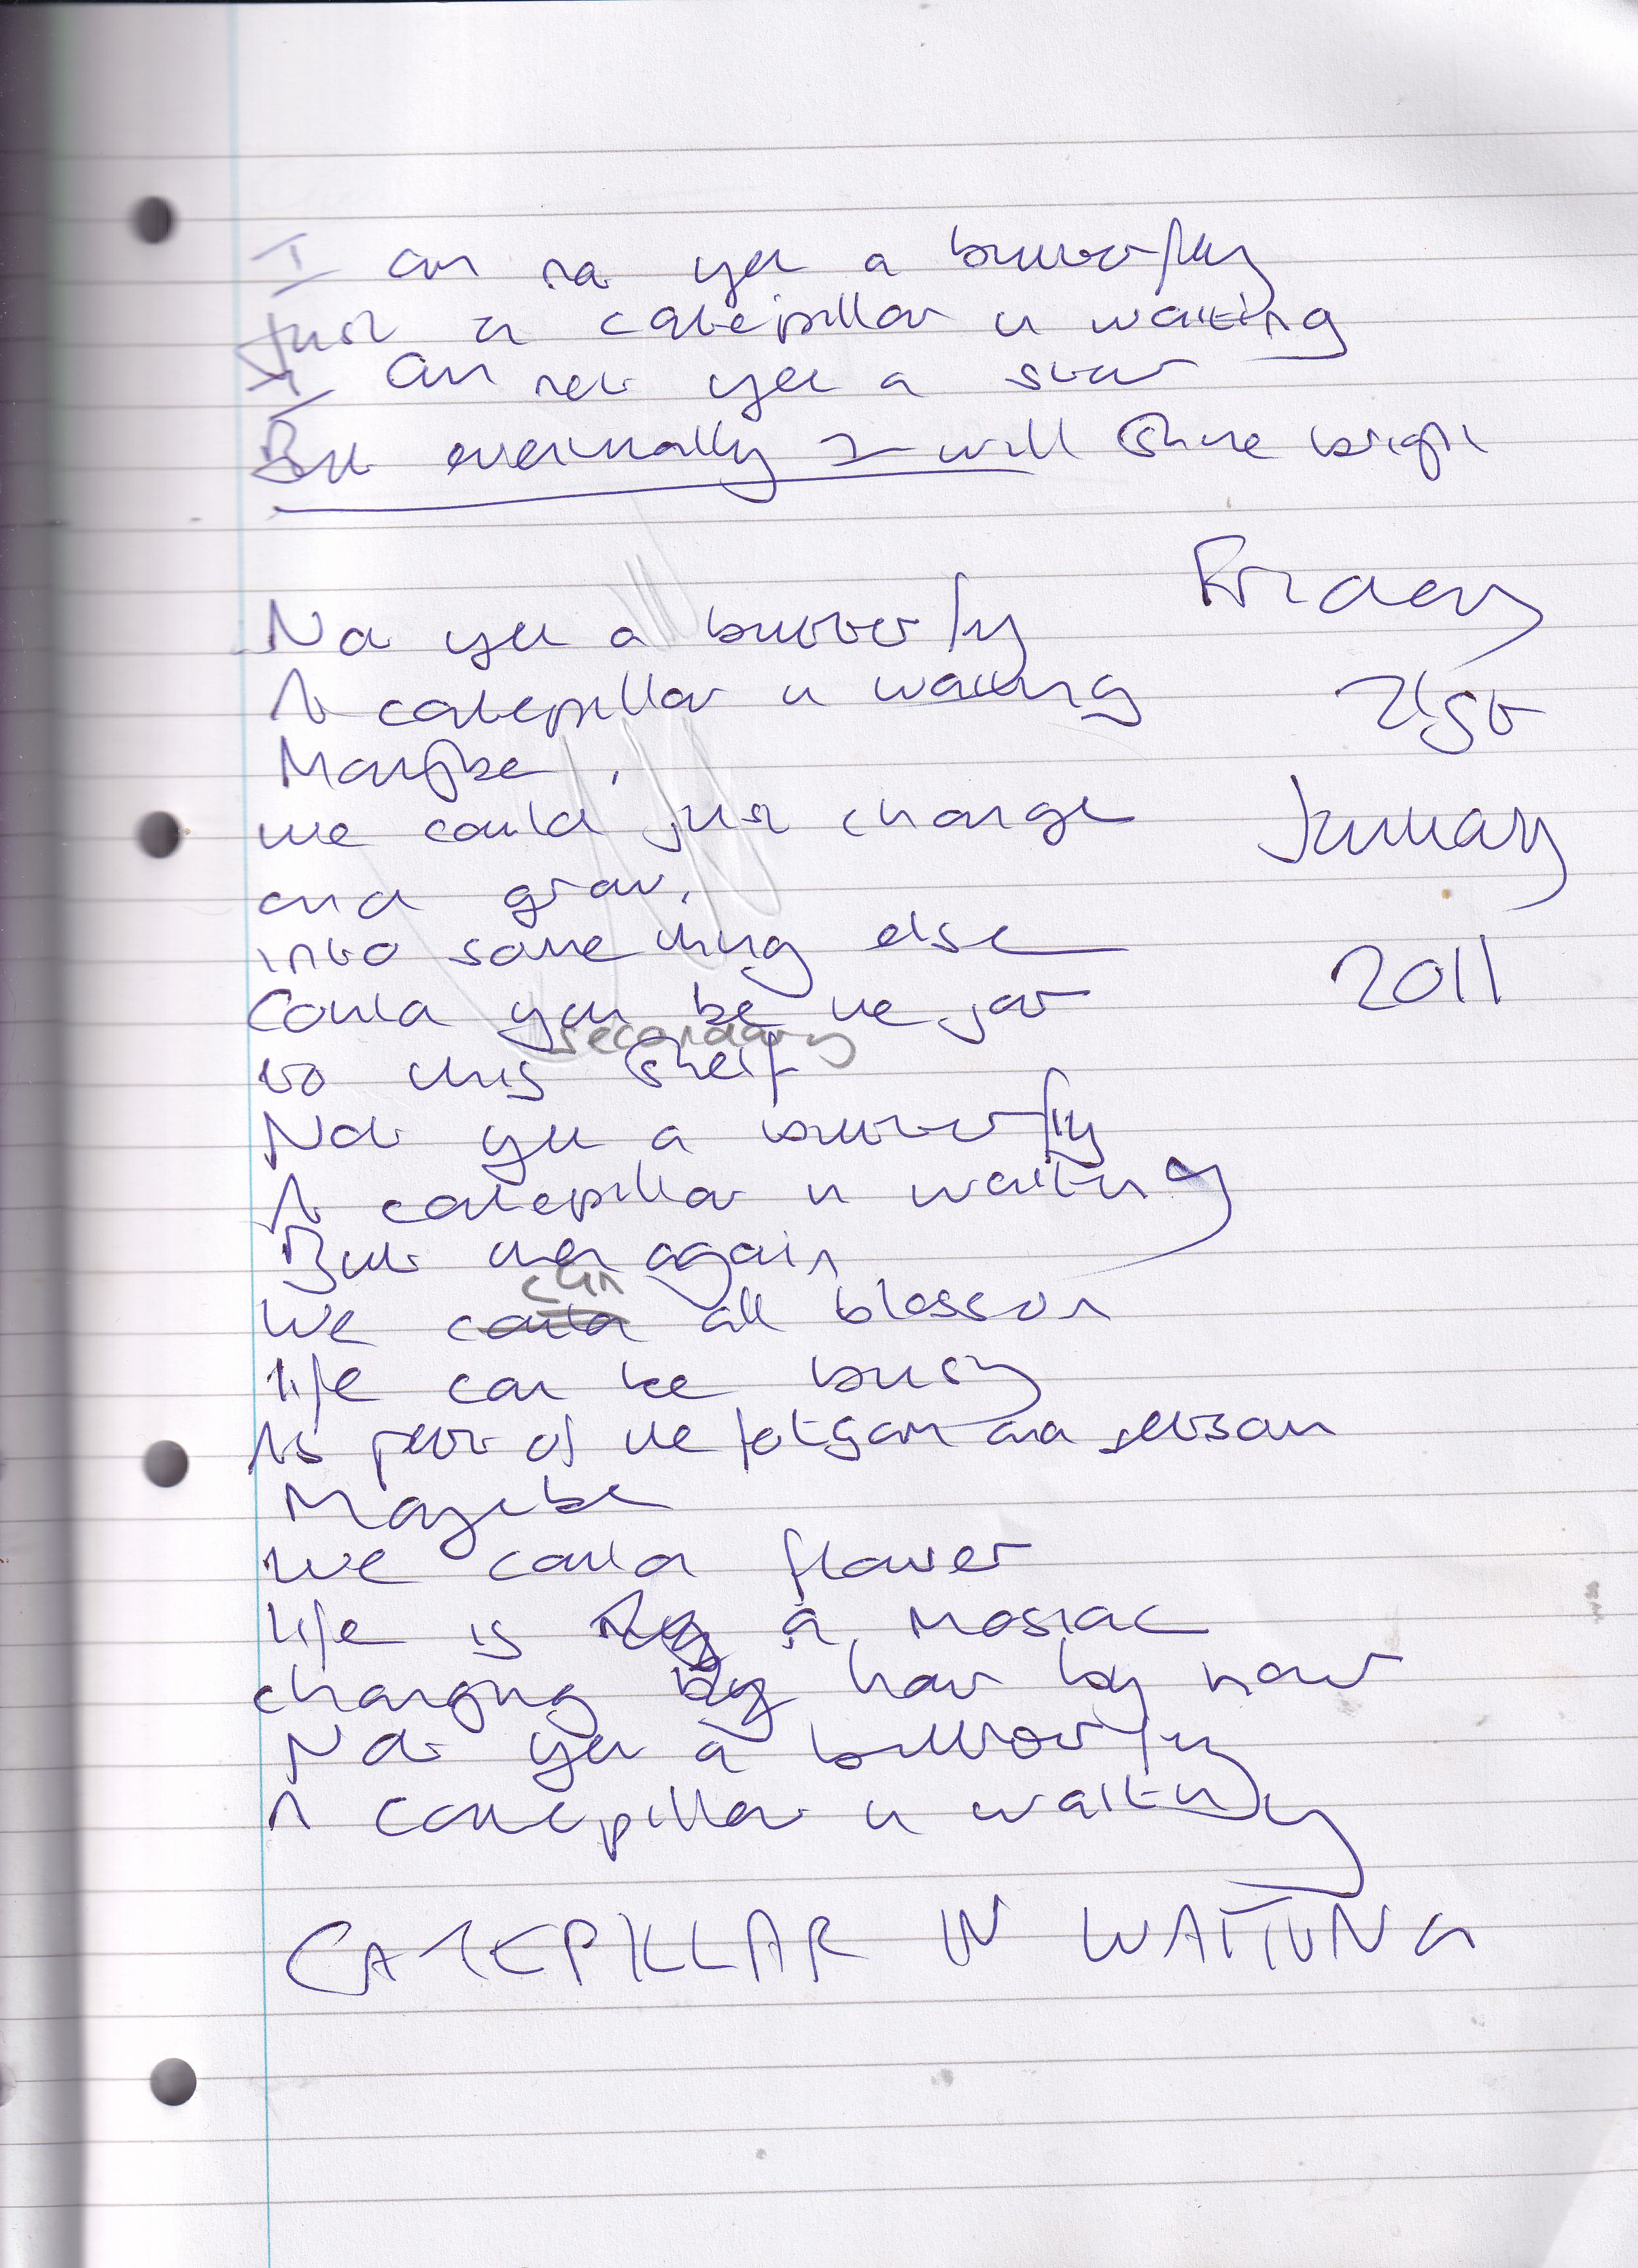 I am not yet a butterfly
Just a catepillar in waiting
I am not yet a star
But eventually I will shine bright
Friday
21st
January
2011
Not yet a butterfly
A catepillar in waiting
Maybe,
we could just change
and grow,
into something else
Could you be the jar
secondary
to this shelf
Not yet a butterfly
A catepillar in waiting
But then again
can
We could all blossom
life can be busy
As part of the and
Maybe
We could flower
life is a mosiac
changing by hour by hour
Not yet a butterfly
A catepillar in waiting
CATEPILLAR IN WAITING